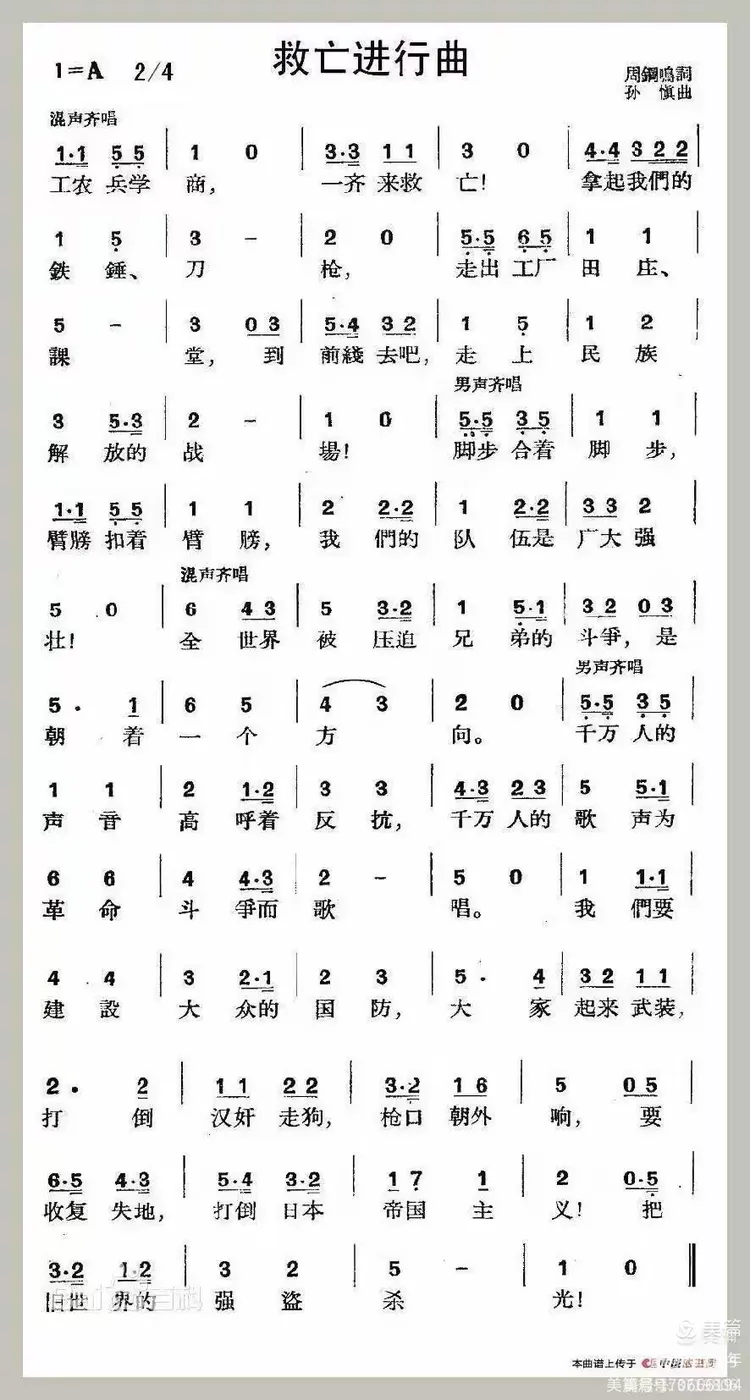 救亡进行曲
1=A 2/4
周鋼鳴詞
孙慎曲
混声齐唱
1·1 5 5 | 1 0 | 3·3 1 1 | 3 0 | 4·4 3 2 2 |
工农兵学商，一齐来救亡！拿起我們的
1 5 | 3 - | 2 0 | 5·5 6 5 | 1 1 |
鉄錘、刀枪，走出工厂田庄、
5 - | 3 0 3 | 5·4 3 2 | 1 5 | 1 2 |
課堂，到前綫去吧，走上民族
男声齐唱
3 5·3 | 2 - | 1 0 | 5·5 3 5 | 1 1 |
解放的战場！脚步合着脚步，
1·1 5 5 | 1 1 | 2 2·2 | 1 2·2 | 3 3 2 |
臂膀扣着臂膀，我們的队伍是广大强
混声齐唱
5 0 | 6 4 3 | 5 3·2 | 1 5·1 | 3 2 0 3 |
壮！全世界被压迫兄弟的斗爭，是
男声齐唱
5· 1 | 6 5 | 4 3 | 2 0 | 5·5 3 5 |
朝着一个方向。千万人的
1 1 | 2 1·2 | 3 3 | 4·3 2 3 | 5 5·1 |
声音高呼着反抗，千万人的歌声为
6 6 | 4 4·3 | 2 - | 5 0 | 1 1·1 |
革命斗爭而歌唱。我們要
4 4 | 3 2·1 | 2 3 | 5· 4 | 3 2 1 1 |
建設大众的国防，大家起来武装，
2· 2 | 1 1 2 2 | 3·2 1 6 | 5 0 5 |
打倒汉奸走狗，枪口朝外响，要
6·5 4·3 | 5·4 3·2 | 1 7 1 | 2 0·5 |
收复失地，打倒日本帝国主义！把
3·2 1·2 | 3 2 | 5 - | 1 0 ‖
旧世界的强盗杀光！
美篇
本曲谱上传于